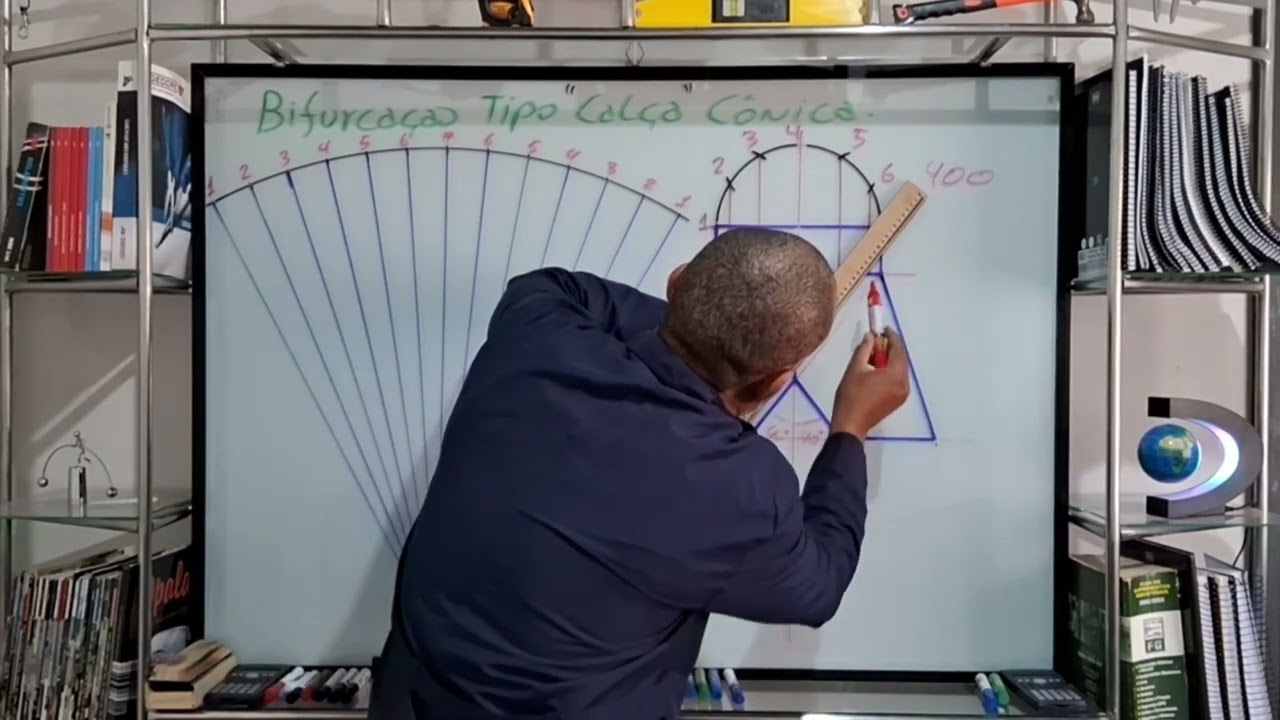 Bifurcação Tipo "Calça Cônica.
1 2 3 4 5 6 7 6 5 4 3 2 1
1 2 3 4 5 6 400
40°
GEDORE
opala
FG